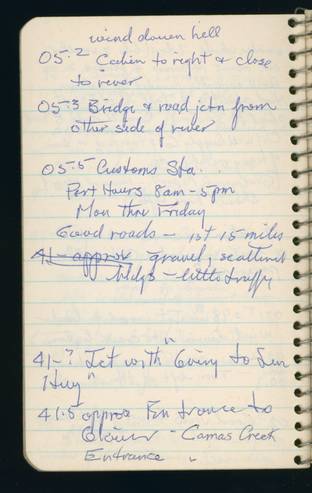 wind down hill
05.2 Cabin to right & close
to river
05.3 Bridge & road jctn from
other side of river
05.5 Customs Sta.
Port Hours 8am - 5pm
Mon thru Friday
Good roads - 1st 15 miles
41 - approx gravel, scattered
bldgs - little traffic
41-? Jct with "Going to Sun
Hwy"
41.5 approx Entrance to
Glacier - Camas Creek
Entrance